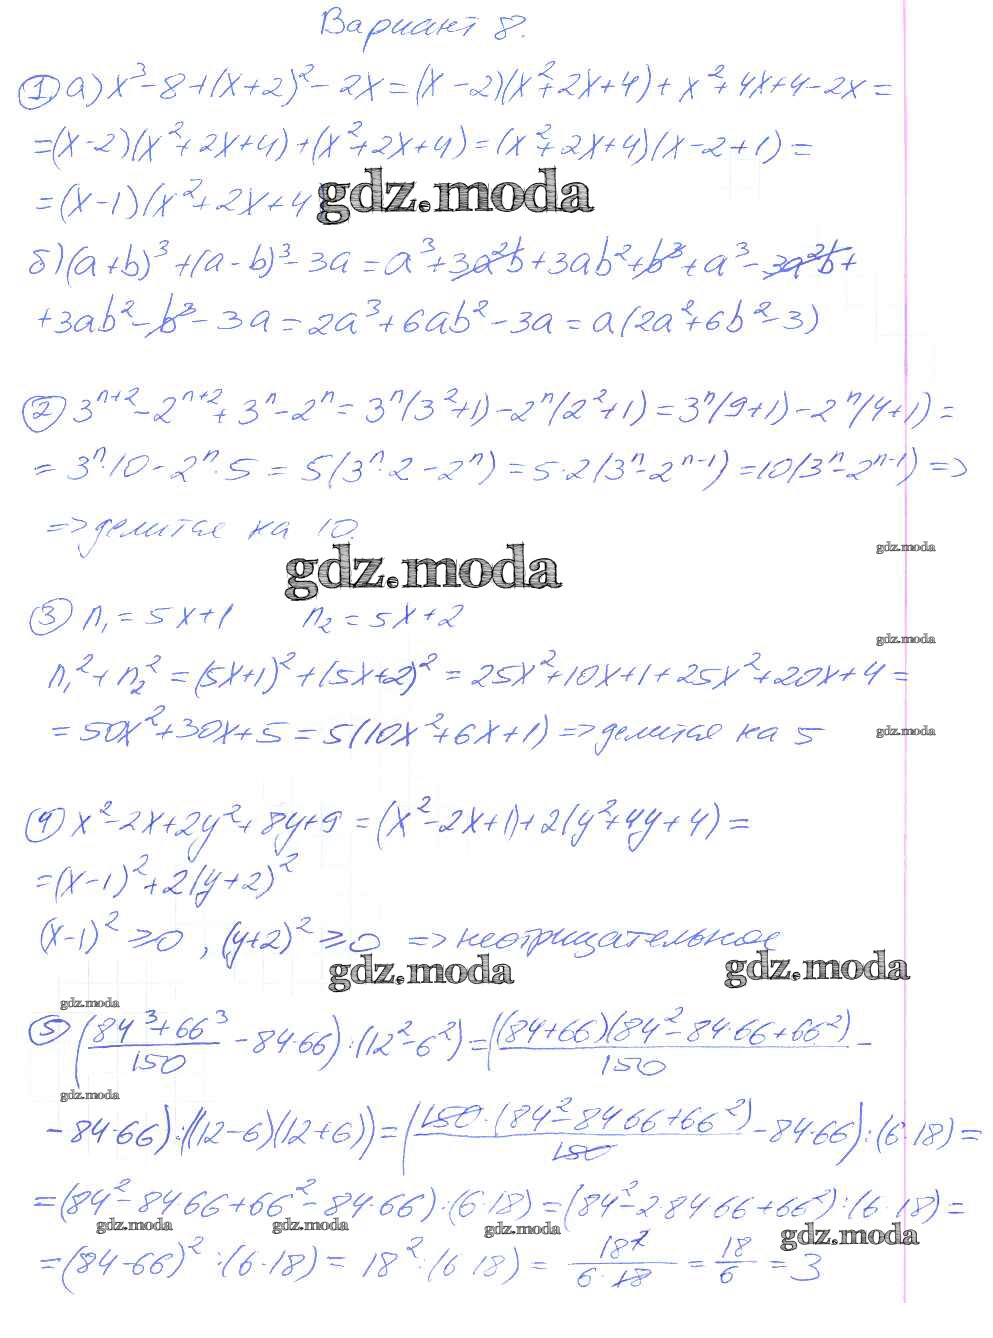 Вариант 8.
① а) x³ - 8 + (x+2)² - 2x = (x-2)(x²+2x+4) + x²+4x+4-2x =
= (x-2)(x²+2x+4) + (x²+2x+4) = (x²+2x+4)(x-2+1) =
= (x-1)(x²+2x+4
gdz.moda
б) (a+b)³ + (a-b)³ - 3a = a³ + 3a²b + 3ab² + b³ + a³ - 3a²b +
+ 3ab² - b³ - 3a = 2a³ + 6ab² - 3a = a(2a²+6b²-3)
② 3ⁿ⁺² - 2ⁿ⁺² + 3ⁿ - 2ⁿ = 3ⁿ(3²+1) - 2ⁿ(2²+1) = 3ⁿ(9+1) - 2ⁿ(4+1) =
= 3ⁿ·10 - 2ⁿ·5 = 5(3ⁿ·2 - 2ⁿ) = 5·2(3ⁿ - 2ⁿ⁻¹) = 10(3ⁿ - 2ⁿ⁻¹) =>
=> делится на 10.
gdz.moda
gdz.moda
③ n₁ = 5x+1 n₂ = 5x+2
gdz.moda
n₁² + n₂² = (5x+1)² + (5x+2)² = 25x²+10x+1+25x²+20x+4 =
= 50x²+30x+5 = 5(10x²+6x+1) => делится на 5
gdz.moda
④ x² - 2x + 2y² + 8y + 9 = (x²-2x+1) + 2(y²+4y+4) =
= (x-1)² + 2(y+2)²
(x-1)² ≥ 0 , (y+2)² ≥ 0 => неотрицательное
gdz.moda gdz.moda
gdz.moda
⑤ ((84³+66³)/150 - 84·66) : (12²-6²) = ((84+66)(84²-84·66+66²)/150 -
gdz.moda
- 84·66) : ((12-6)(12+6)) = (150·(84²-84·66+66²)/150 - 84·66) : (6·18) =
= (84²-84·66+66²-84·66) : (6·18) = (84²-2·84·66+66²) : (6·18) =
gdz.moda gdz.moda gdz.moda gdz.moda
= (84-66)² : (6·18) = 18² : (6·18) = 18²/(6·18) = 18/6 = 3